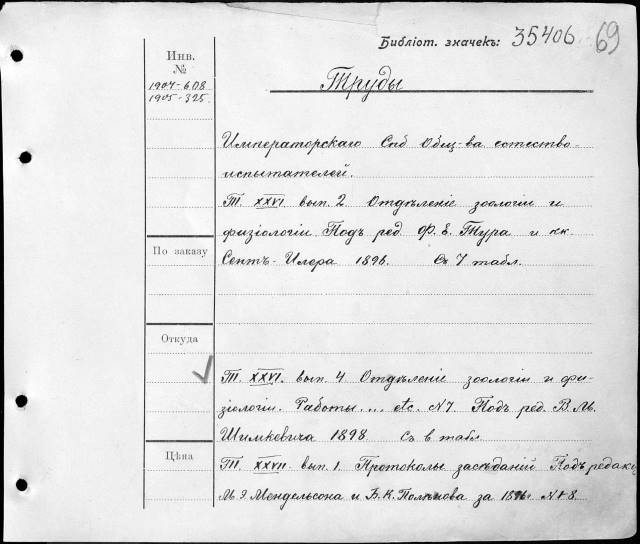 Библіот. значекъ: 35406 69
Инв. №
1904-608
1905-325
Труды
Императорскаго Спб Общ-ва естество-
испытателей.
Т. XXVI. вып. 2 Отдѣленіе зоологіи и
физіологіи Подъ ред Ф. Е. Тура и кн
По заказу
Сентъ-Илера 1896. Съ 7 табл.
Откуда
Т. XXVI. вып. 4 Отдѣленіе зоологіи и фи-
зіологіи. Работы ... etc. №7. Подъ ред. В. М.
Шимкевича 1898 Съ 6 табл
Цѣна
Т. XXVII вып. 1. Протоколы засѣданій Подъ редакц
М Э. Мендельсона и В. К. за 1896 №1-8